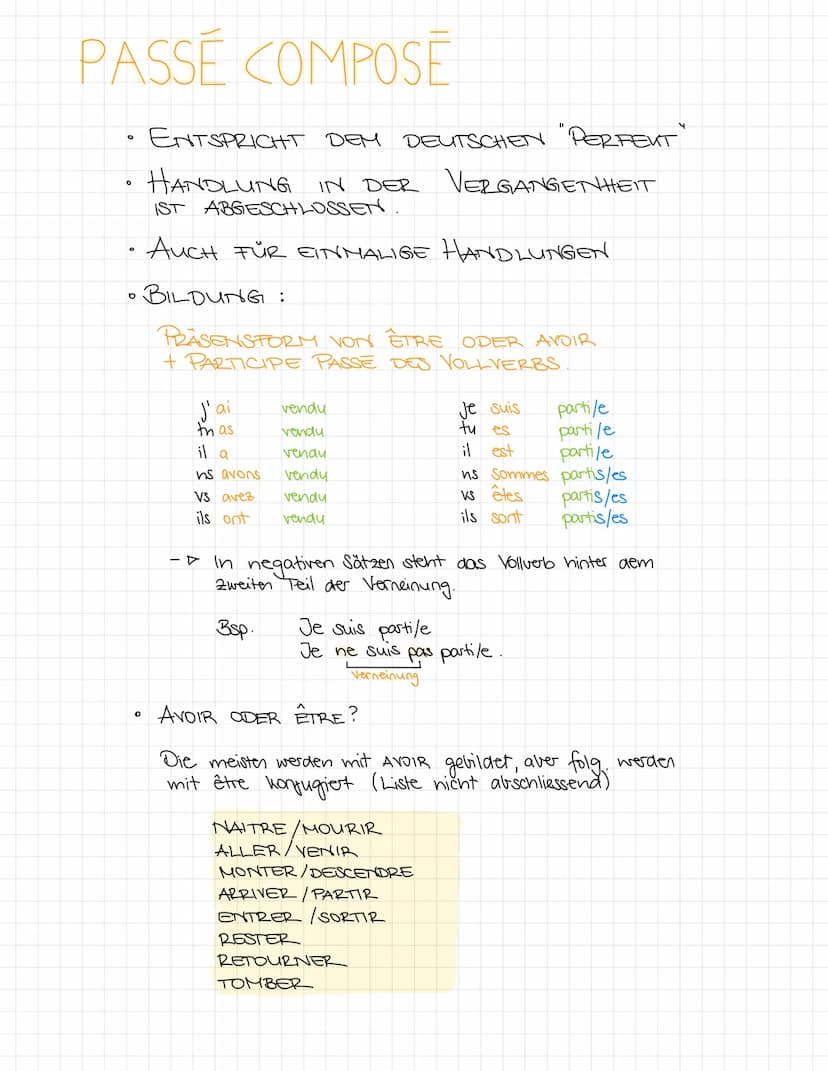 PASSÉ COMPOSÉ
• ENTSPRICHT DEM DEUTSCHEN "PERFEKT"
• HANDLUNG IN DER VERGANGENHEIT
IST ABGESCHLOSSEN.
• AUCH FÜR EINMALIGE HANDLUNGEN
• BILDUNG :
PRÄSENSFORM VON ÊTRE ODER AVOIR
+ PARTICIPE PASSÉ DES VOLLVERBS.
j'ai vendu je suis parti/e
tu as vendu tu es parti/e
il a vendu il est parti/e
ns avons vendu ns sommes partis/es
vs avez vendu vs êtes partis/es
ils ont vendu ils sont partis/es
-▷ In negativen Sätzen steht das Vollverb hinter dem
zweiten Teil der Verneinung.
Bsp. Je suis parti/e
Je ne suis pas parti/e.
Verneinung
• AVOIR ODER ÊTRE?
Die meisten werden mit AVOIR gebildet, aber folg. werden
mit être konjugiert (Liste nicht abschliessend)
NAITRE/MOURIR
ALLER/VENIR
MONTER/DESCENDRE
ARRIVER/PARTIR
ENTRER/SORTIR
RESTER
RETOURNER
TOMBER